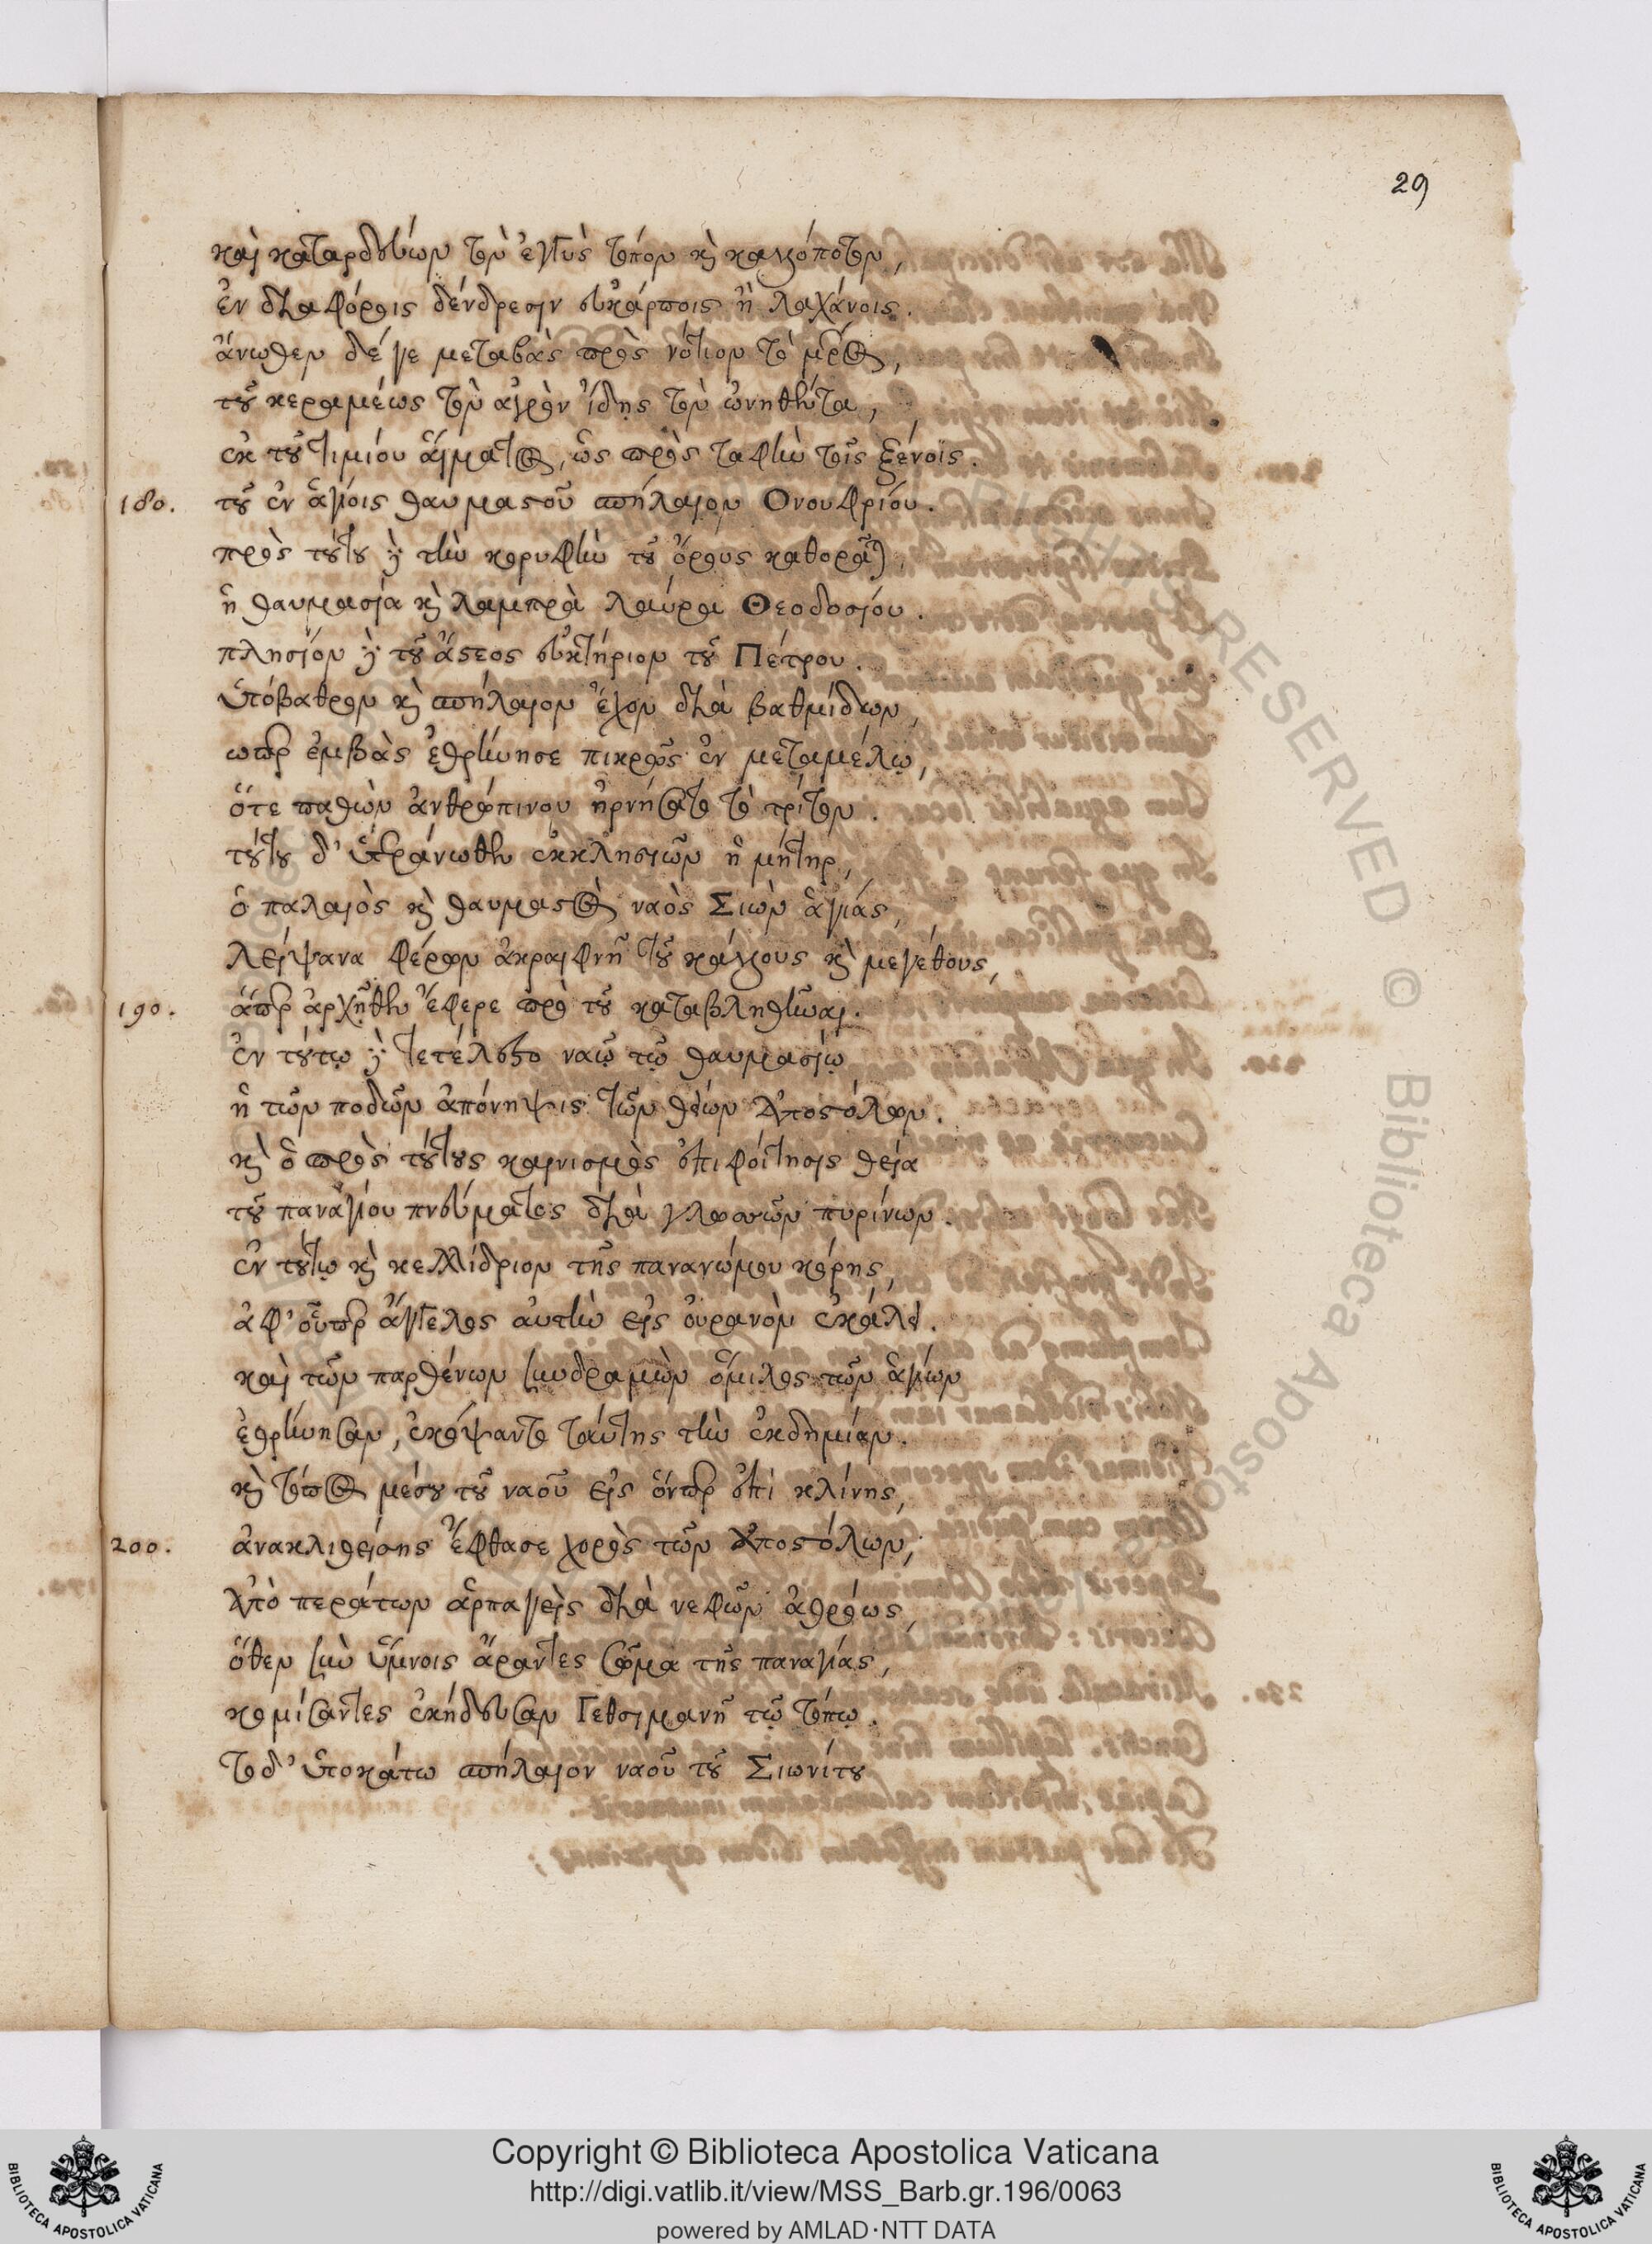 29
καὶ καταρδεύων τὸν ἐγγὺς τόπον κὴ καλλόποτον,
ἐν διαφόροις δένδρεσιν εὐκάρποις ἢ λαχάνοις.
ἄνωθεν δέ γε μεταβὰς πρὸς νότιον τὸ μέρος,
τοῦ κεραμέως τὸν ἀγρὸν ἴδῃς τὸν ὠνηθέντα,
ἐκ τοῦ τιμίου αἵματος, ὡς πρὸς ταφὴν τοῖς ξένοις.
180. τοῦ ἐν ἁγίοις θαυμαστοῦ σπήλαιον Ονουφρίου.
πρὸς τούτου δὲ τὴν κορυφὴν τοῦ ὄρους καθορᾶται
ἡ θαυμασία κὴ λαμπρὰ λαύρα Θεοδοσίου.
πλησίον δὲ τοῦ ἄστεος εὐκτήριον τοῦ Πέτρου.
ὑπόβαθρον κὴ σπήλαιον ἔχον διὰ βαθμίδων,
ωπερ ἐμβὰς ἐθρήνησε πικρῶς ἐν μεταμέλῳ,
ὅτε παθὼν ἀνθρώπινον ἠρνήσατο τὸ τρίτον.
τούτου δ' ὑπεράνωθεν ἐκκλησιῶν ἡ μήτηρ,
ὁ παλαιὸς κὴ θαυμαστὸς ναὸς Σιὼν ἁγίας,
λείψανα φέρων ἀκραιφνῆ τοῦ κάλλους κὴ μεγέθους,
190. ἅπερ ἀρχῆθεν ἔφερε πρὸ τοῦ καταβληθῆναι.
ἐν τούτῳ δὲ τετέλεστο ναῷ τῷ θαυμασίῳ
ἡ τῶν ποδῶν ἀπόνηψις τῶν θείων Ἀποστόλων.
κὴ ὁ πρὸς τούτους καινισμὸς ἐπιφοίτησις θεία
τοῦ παναγίου πνεύματος διὰ γλωσσῶν πυρίνων.
ἐν τούτῳ κὴ κελλίδριον τῆς πανανώμου κόρης,
ἀφ' οὗπερ ἄγγελος αὐτὴν εἰς οὐρανὸν ἐκάλει.
καὶ τῶν παρθένων συνδραμὼν ὅμιλος τῶν ἁγίων
ἐθρήνησαν, ἐκόψαντο ταύτης τὴν ἐκδημίαν.
κὴ τόπος μέσου τοῦ ναοῦ εἰς ὅνπερ ἐπὶ κλίνης,
200. ἀνακλιθείσης ἔφθασε χορὸς τῶν Ἀποστόλων,
Ἀπὸ περάτων ἁρπαγεὶς διὰ νεφῶν ἀθρόως,
ὅθεν σὺν ὕμνοις ἄραντες σῶμα τῆς παναγίας,
κομίσαντες ἐκήδευσαν Γεθσιμανῆ τῷ τόπῳ.
Τὸ δ' ὑποκάτω σπήλαιον ναοῦ τοῦ Σιωνίτου
Copyright © Biblioteca Apostolica Vaticana
http://digi.vatlib.it/view/MSS_Barb.gr.196/0063
powered by AMLAD·NTT DATA
BIBLIOTECA APOSTOLICA VATICANA
BIBLIOTECA APOSTOLICA VATICANA